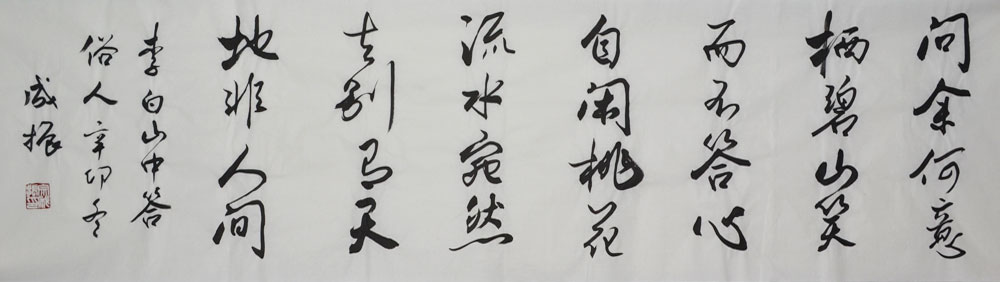 问余何意
栖碧山笑
而不答心
自闲桃花
流水宛然
去别有天
地非人间
李白山中答
俗人辛卯冬
振